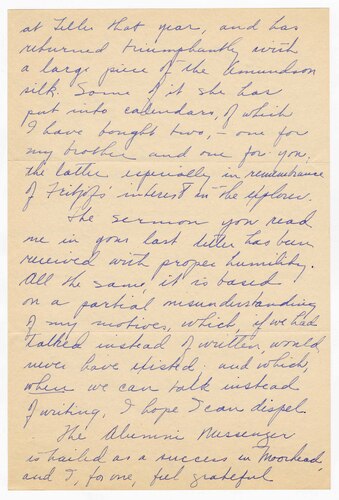 at Teller that year, and has
returned triumphantly with
a large piece of the Amundson
silk. Some of it she has
put into calendars, of which
I have bought two, – one for
my brother and one for you,
the latter especially in remembrance
of Fritjof's interest in the explorer.
The sermon you read
me in your last letter has been
received with proper humility.
All the same, it is based
on a partial misunderstanding
of my motives, which, if we had
talked instead of written, would
never have existed, and which,
when we can talk instead
of writing, I hope I can dispel.
The Alumni Messenger
is hailed as a success in Moorhead,
and I, for one, feel grateful